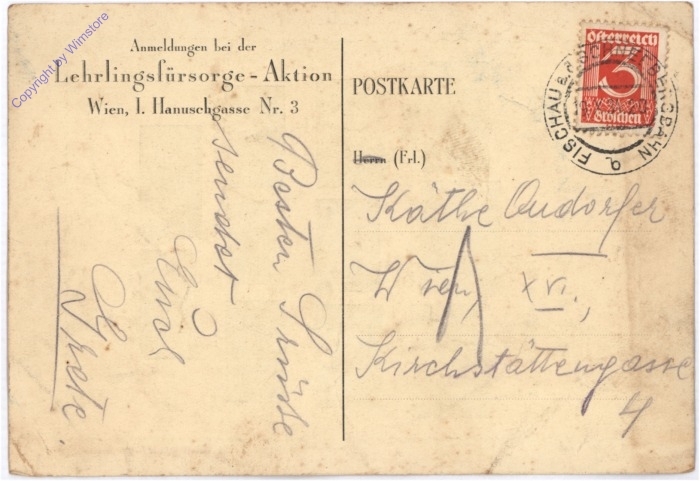 Copyright by Wimstore
Anmeldungen bei der
Lehrlingsfürsorge-Aktion
Wien, I. Hanuschgasse Nr. 3
Besten Grüsse
sendet
Euch
Grete
POSTKARTE
Herrn (Frl.)
Käthe Oudorfer
Wien, XVI.,
Kirchstättengasse
4
Österreich
3
Groschen
FISCHAU a. d. SCHNEEBERGBAHN